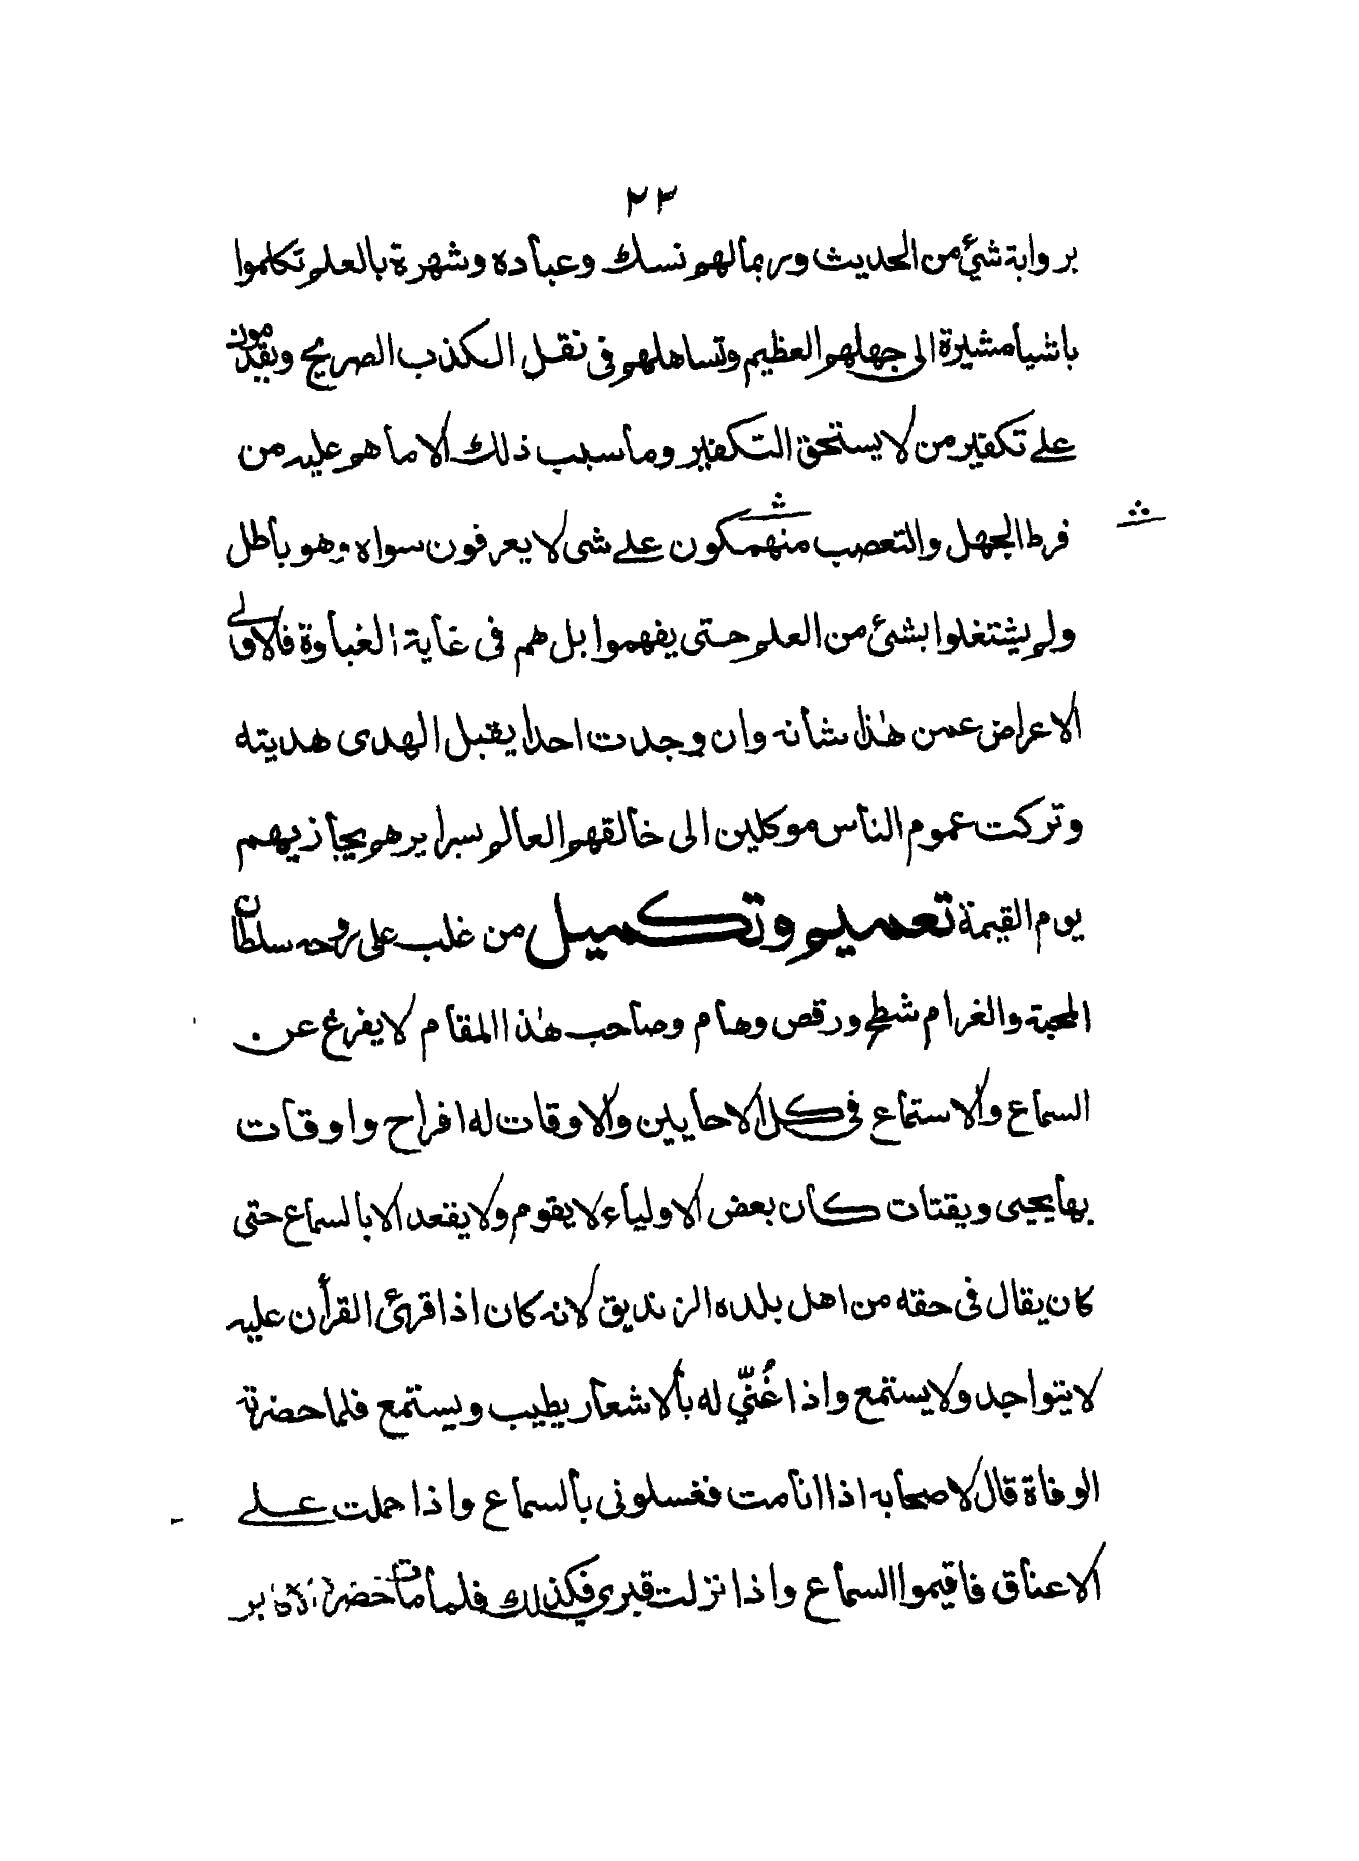 ٢٣
برواية شيئ من الحديث وربما لهم نسك وعباده وشهرة بالعلم تكلموا
باشيأ مشيرة الى جهلهم العظيم وتساهلهم فى نقل الكذب الصريح ويقدمون
على تكفير من لا يستحق التكفير وما سبب ذلك الا ما هم عليه من
فرط الجهل والتعصب منهمكون على شى لا يعرفون سواه وهو باطل
ولم يشتغلوا بشئ من العلم حتى يفهموا بل هم فى غاية الغباوة فالاولى
الاعراض عمن هذا شانه وان وجدت احدا يقبل الهدى هديته
وتركت عموم الناس موكلين الى خالقهم العالم بسرايرهم يجازيهم
يوم القيمة تعميم وتكميل من غلب على روحه سلطان
المحبة والغرام شطح ورقص وهام وصاحب هذا المقام لا يفرغ عن
السماع والاستماع فى كل الاحايين والاوقات له افراح واوقات
بها يحيى ويقتات كان بعض الاولياء لا يقوم ولا يقعد الا بالسماع حتى
كان يقال فى حقه من اهل بلده الزنديق لانه كان اذا قرئ القرأن عليه
لا يتواجد ولا يستمع واذا غُنّي له بالاشعار يطيب ويستمع فلما حضرته
الوفاة قال لاصحابه اذا انا مت فغسلونى بالسماع واذا حملت على
الاعناق فاقيموا السماع واذا نزلت قبري فكذلك فلما مات حضر